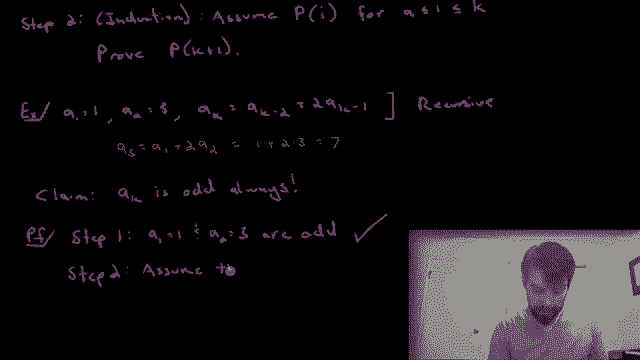 Step 2: (Induction): Assume P(i) for a ≤ i ≤ k
Prove P(k+1).
Ex/ a₁=1, a₂=3, aₖ = aₖ₋₂ + 2aₖ₋₁ ] Recursive
a₃ = a₁ + 2a₂ = 1 + 2·3 = 7
Claim: aₖ is odd always!
Pf/ Step 1: a₁=1 + a₂=3 are odd ✓
Step 2: Assume th